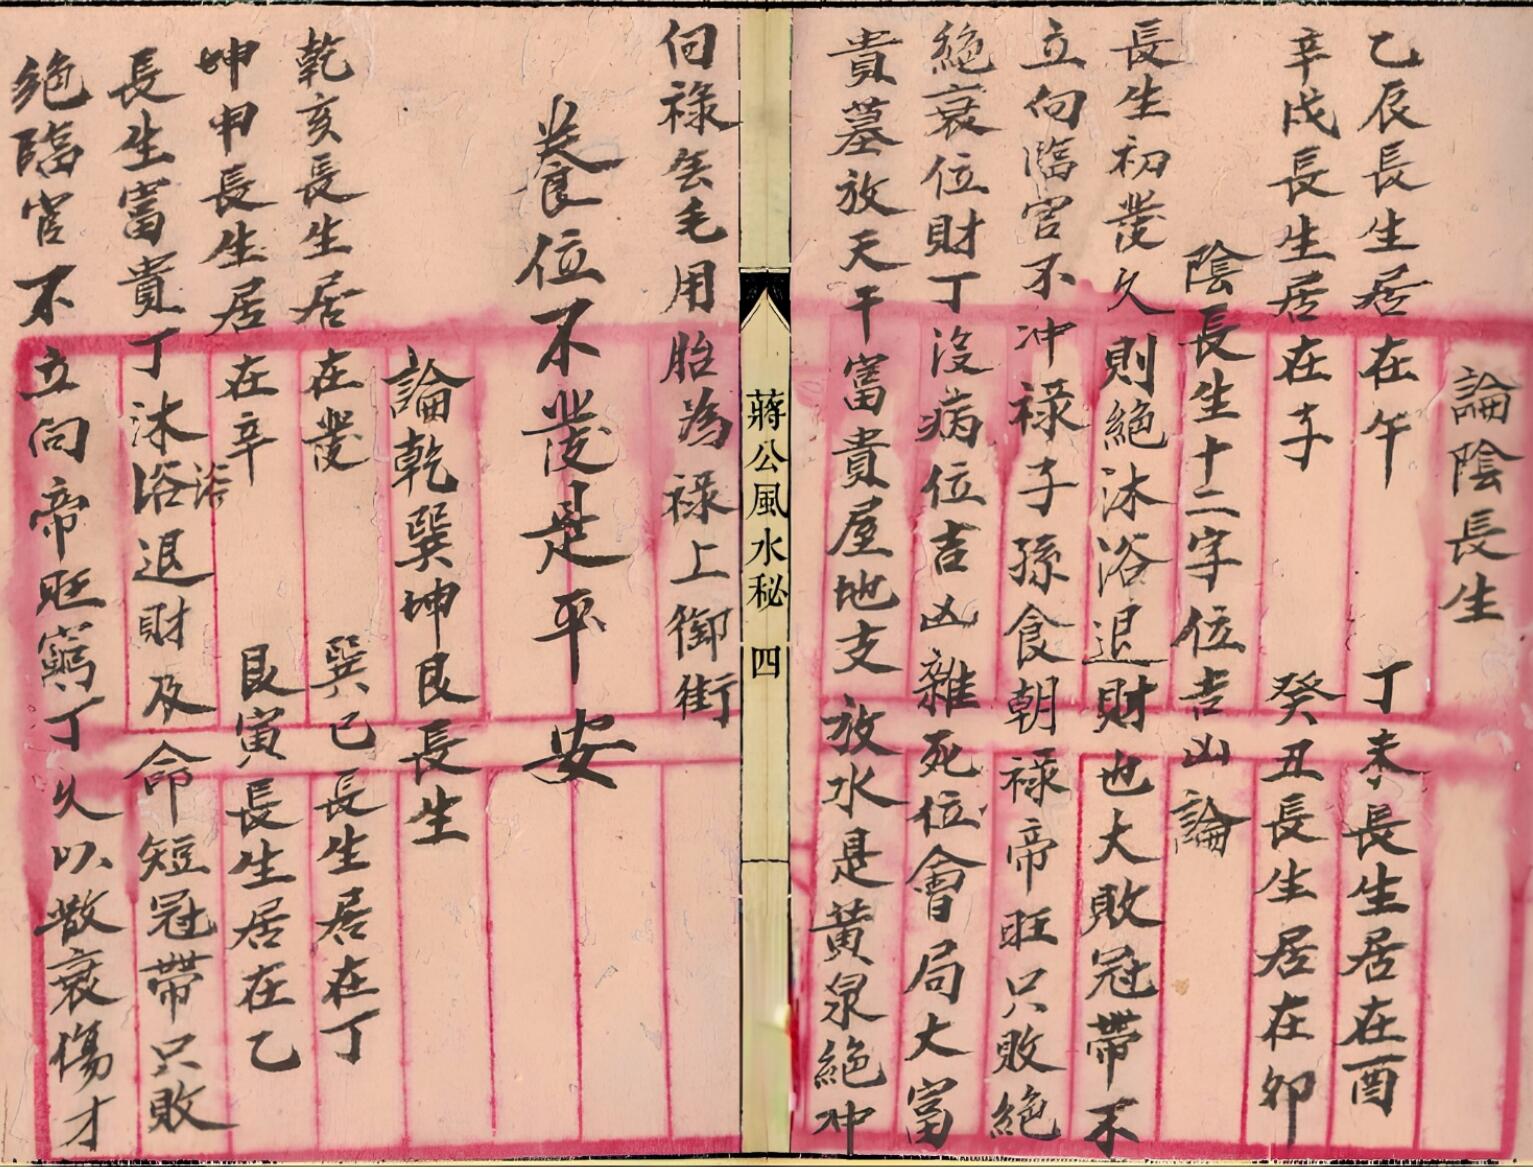 論陰長生
乙辰長生居在午 丁未長生居在酉
辛戌長生居在子 癸丑長生居在卯
陰長生十二字位吉凶論
長生初發久則絕沐浴退財也大敗冠帶不
立向臨官不冲禄子孫食朝禄帝旺只敗絕
絕衰位財丁沒病位吉凶雜死位會局大富
貴墓放天干富貴屋地支放水是黃泉絕冲
蔣公風水秘 四
向祿 毛用胎為祿上御街
養位不發是平安
論乾巽坤艮長生
乾亥長生居在癸 巽巳長生居在丁
坤申長生居在辛 艮寅長生居在乙
長生富貴丁沐浴退財及命短冠帶只敗
浴
絕臨官不立向帝旺窮丁久以敗衰傷才